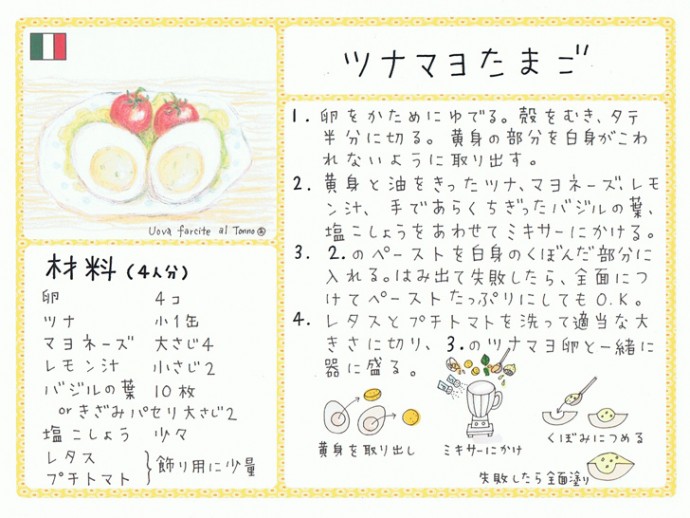 ツナマヨたまご
Uova farcite al Tonno
材料(4人分)
卵 4コ
ツナ 小1缶
マヨネーズ 大さじ4
レモン汁 小さじ2
バジルの葉 10枚
orきざみパセリ大さじ2
塩こしょう 少々
レタス
プチトマト
飾り用に少量
1. 卵をかためにゆでる。殻をむき、タテ
半分に切る。黄身の部分を白身がこわ
れないように取り出す。
2. 黄身と油をきったツナ、マヨネーズ、レモ
ン汁、手であらくちぎったバジルの葉、
塩こしょうをあわせてミキサーにかける。
3. 2.のペーストを白身のくぼんだ部分に
入れる。はみ出て失敗したら、全面につ
けてペーストたっぷりにしてもO.K。
4. レタスとプチトマトを洗って適当な大
きさに切り、3.のツナマヨ卵と一緒に
器に盛る。
黄身を取り出し
ミキサーにかけ
くぼみにつめる
失敗したら全面塗り